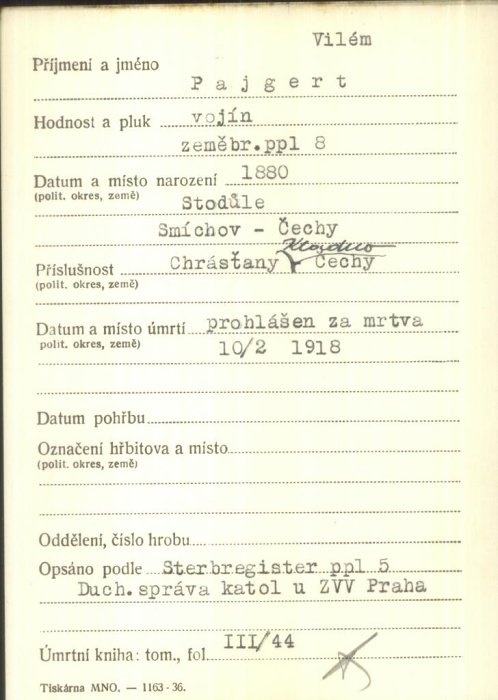 Vilém
Příjmení a jméno
Pajgert
Hodnost a pluk vojín
zeměbr.ppl 8
Datum a místo narození 1880
(polit. okres, země) Stodůle
Smíchov - Čechy
Kladno
Příslušnost Chrásťany Čechy
(polit. okres, země)
Datum a místo úmrtí prohlášen za mrtva
polit. okres, země) 10/2 1918
Datum pohřbu
Označení hřbitova a místo
(polit. okres, země)
Oddělení, číslo hrobu
Opsáno podle Sterbregister ppl 5
Duch.správa katol u ZVV Praha
Úmrtní kniha: tom., fol. III/44
Tiskárna MNO. — 1163-36.